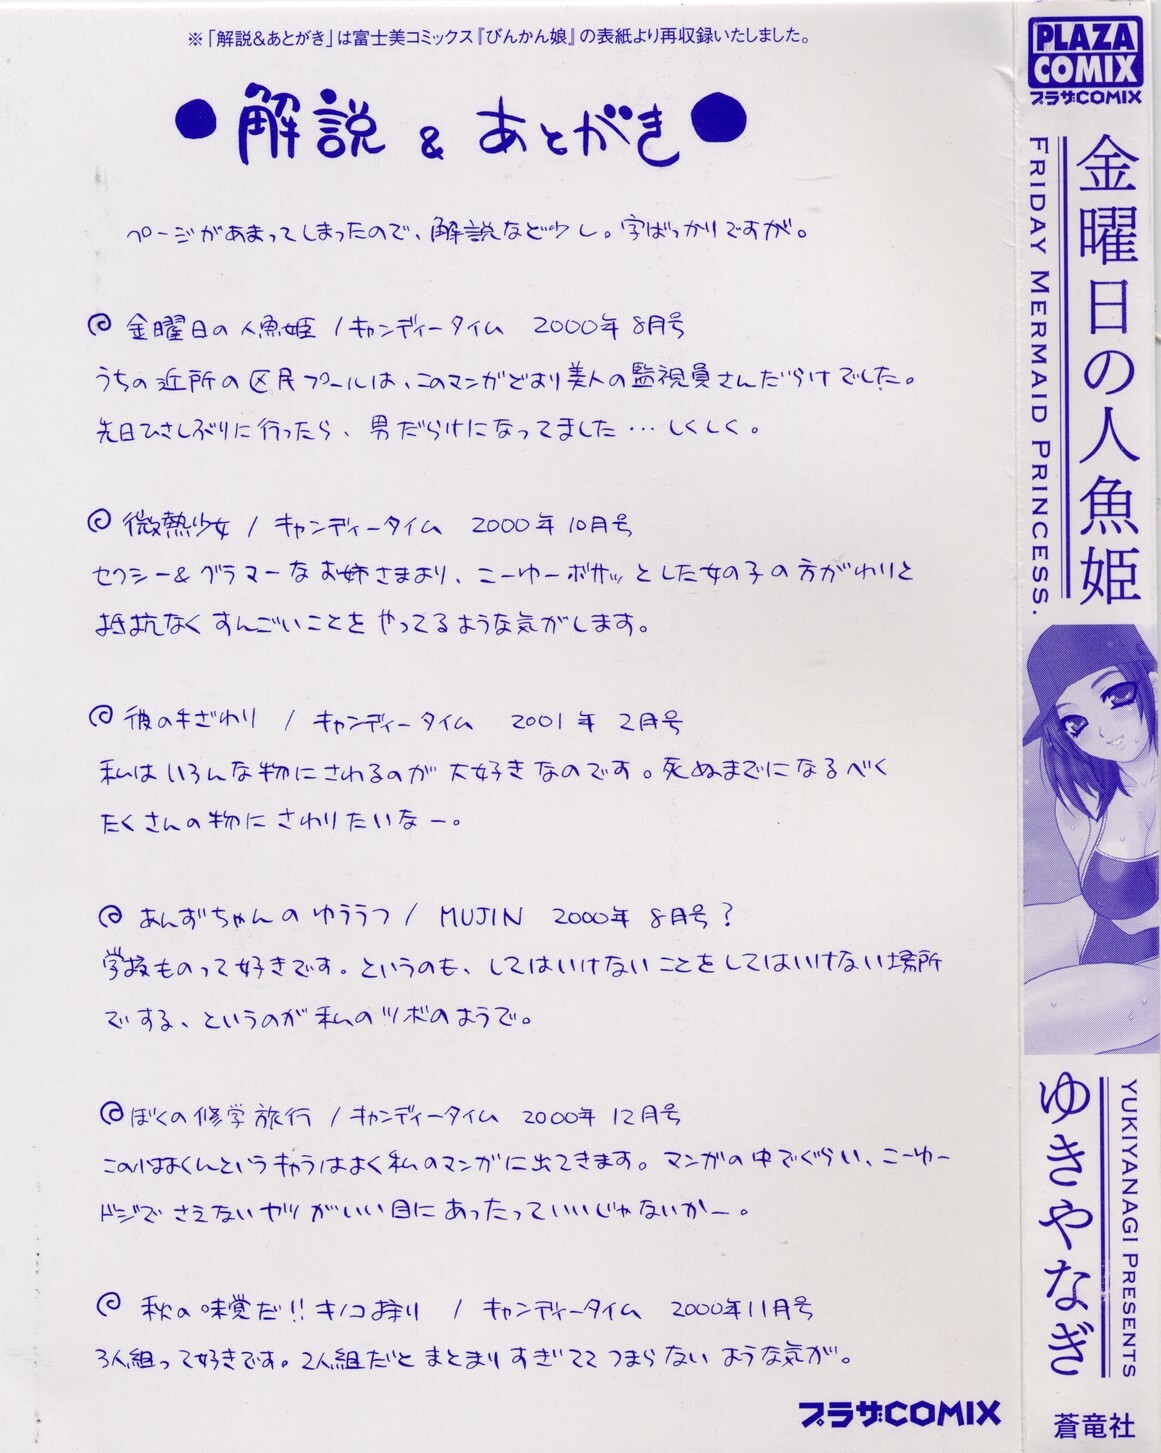 ※「解説&あとがき」は富士美コミックス『びんかん娘』の表紙より再収録いたしました。
●解説 & あとがき●
ページがあまってしまったので、解説など少し。字ばっかりですが。
金曜日の人魚姫 / キャンディータイム 2000年 8月号
うちの近所の区民プールは、このマンガどおり美人の監視員さんだらけでした。
先日ひさしぶりに行ったら、男だらけになってました…しくしく。
微熱少女 / キャンディータイム 2000年 10月号
セクシー&グラマーなお姉さまより、こーゆーボサッとした女の子の方がわりと
抵抗なくすんごいことをやってるような気がします。
彼の手ざわり / キャンディータイム 2001年 2月号
私はいろんな物にさわるのが大好きなのです。死ぬまでになるべく
たくさんの物にさわりたいなー。
あんずちゃんのゆううつ / MUJIN 2000年 8月号?
学校ものって好きです。というのも、してはいけないことをしてはいけない場所
でする、というのが私のツボのようで。
ぼくの修学旅行 / キャンディータイム 2000年 12月号
このはおくんというキャラはよく私のマンガに出てきます。マンガの中でぐらい、こーゆー
ドジでさえないヤツがいい目にあったっていいじゃないかー。
秋の味覚だ!!キノコ狩り / キャンディータイム 2000年11月号
3人組って好きです。2人組だとまとまりすぎててつまらないような気が。
プラザCOMIX
PLAZA
COMIX
プラザCOMIX
金曜日の人魚姫
FRIDAY MERMAID PRINCESS.
ゆきやなぎ
YUKIYANAGI PRESENTS
蒼竜社